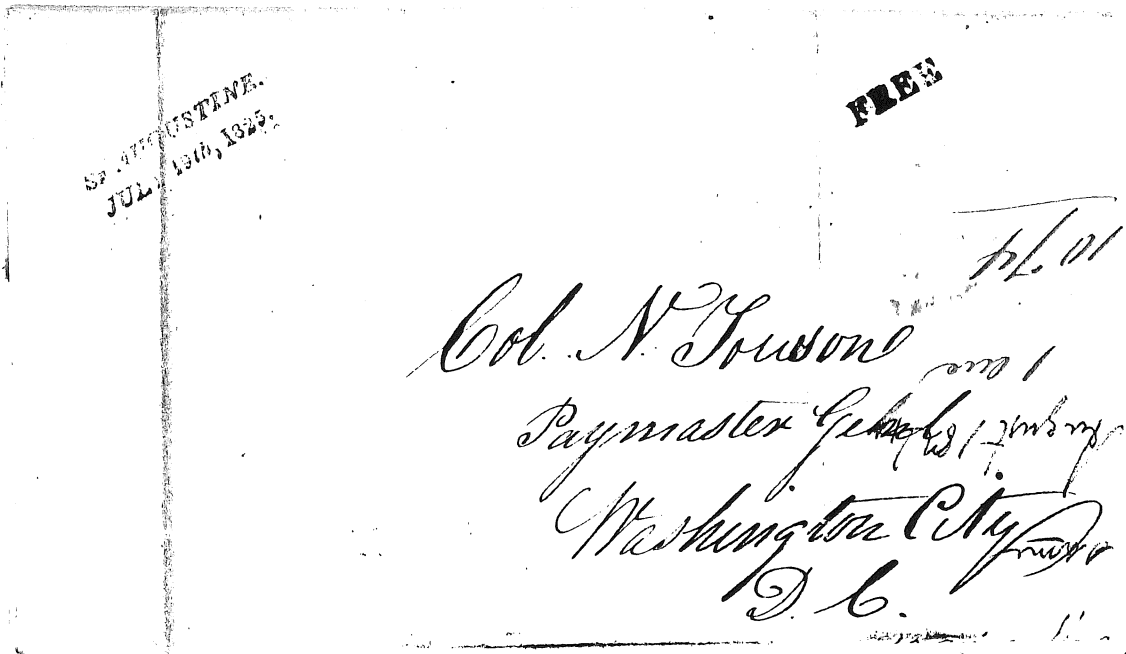 St AUGUSTINE.
JULY 19th, 1825.
FREE
Col. N. Towson
Paymaster Genl
Washington City
D. C.
August